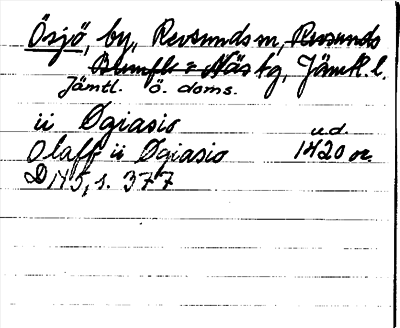 Ösjö, by, Revsunds sn, Revsunds
Brunflo o Näs tg, Jämtl. l.
Jämtl. ö. doms.
ii Øgiasio u.d.
Olaff ii Øgiasio 1420 or.
D 145, s. 377